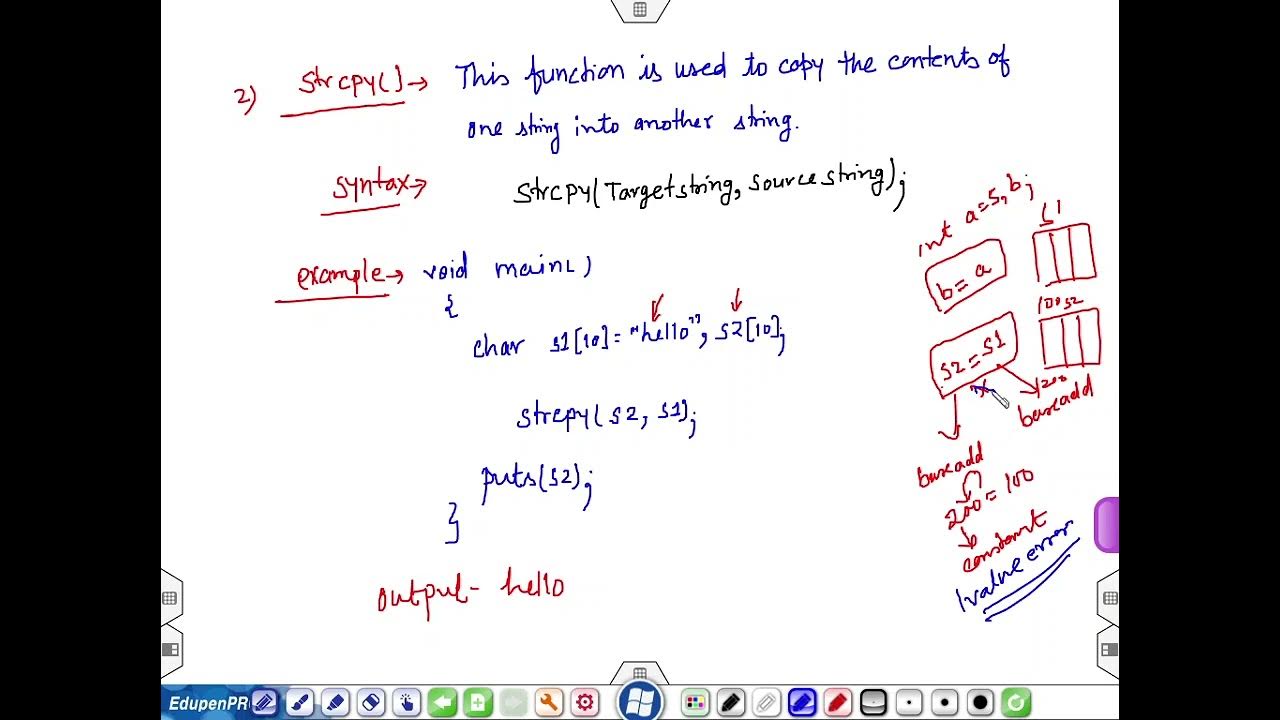 2) strcpy() → This function is used to copy the contents of
one string into another string.
syntax → strcpy(Targetstring, sourcestring);
example → void main()
{
char s1[10]="hello", s2[10];
strcpy(s2, s1);
puts(s2);
}
output- hello
int a=5, b;
b = a
s1
100 s2
s2 = s1
200
baseadd
baseadd
200 = 100
constant
lvalue error
EdupenPR